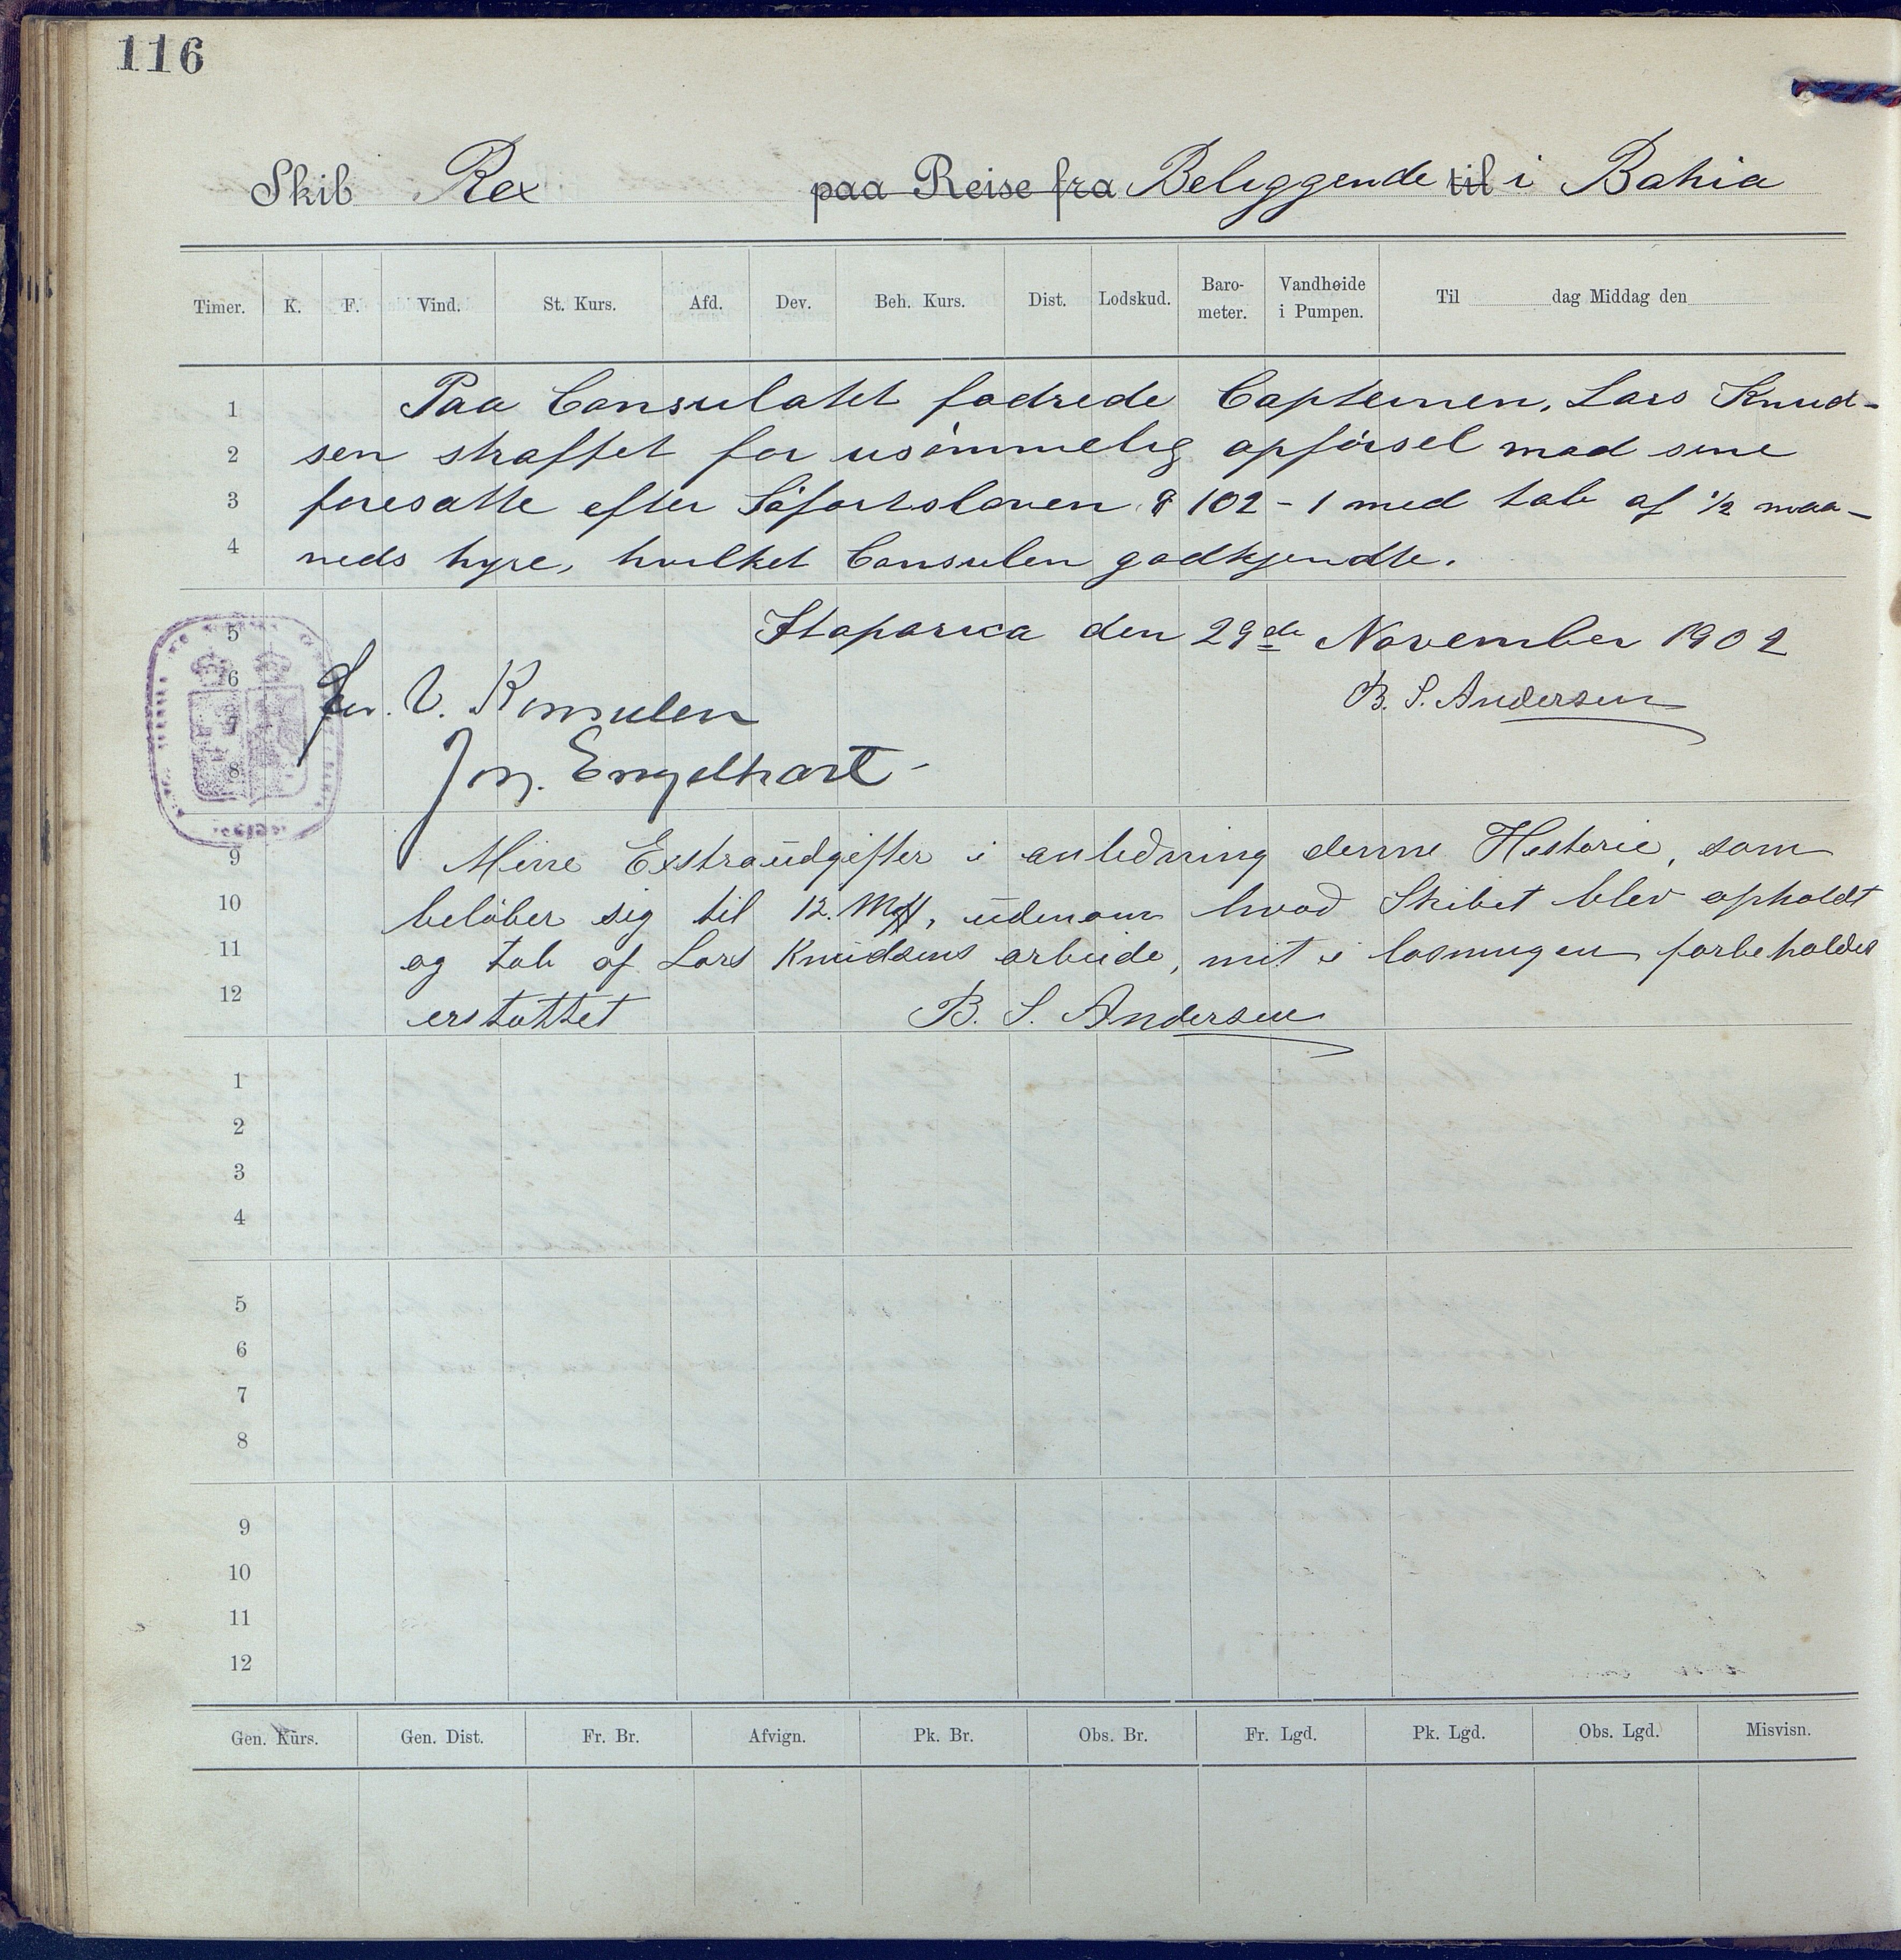 116
Skib Rex paa Reise fra Beliggende til i Bahia
Timer. K. F. Vind. St. Kurs. Afd. Dev. Beh. Kurs. Dist. Lodskud. Baro-meter. Vandhøide i Pumpen. Til dag Middag den
1 Paa Consulatet fodrede Capteinen, Lars Knud-
2 sen straffet for usømmelig opførsel mod sine
3 foresatte efter Søfartsloven § 102 - 1 med tab af 1/2 maa-
4 neds hyre, hvilket Consulen godkjendte.
5 Itaparica den 29de November 1902
6 B. S. Andersen
7 V. Konsulen
8 Engelhart
9 Mine Exstraudgifter i anledning denne Historie, som
10 beløber sig til 12. udenom hvad Skibet blev opholdt
11 og tab af Lars Knudsens arbeide, mit i losningen forbeholdes
12 erstattet B. S. Andersen
1
2
3
4
5
6
7
8
9
10
11
12
Gen. Kurs. Gen. Dist. Fr. Br. Afvign. Pk. Br. Obs. Br. Fr. Lgd. Pk. Lgd. Obs. Lgd. Misvisn.